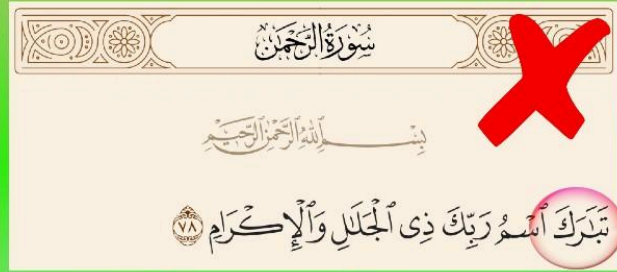 سُورَةُ الرَّحْمَٰن
بِسْمِ ٱللَّهِ ٱلرَّحْمَٰنِ ٱلرَّحِيمِ
تَبَٰرَكَ ٱسْمُ رَبِّكَ ذِى ٱلْجَلَٰلِ وَٱلْإِكْرَامِ ٧٨